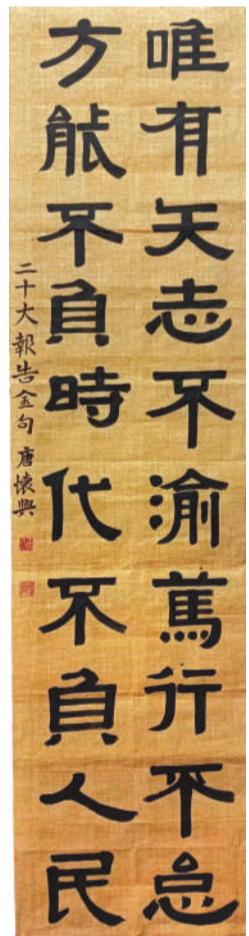 唯有矢志不渝篤行不怠
方能不負時代不負人民
二十大報告金句 唐懷興